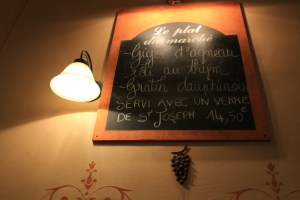 Le plat
du marché
Gigot d'agneau
au thym
Gratin dauphinois
SERVI AVEC UN VERRE
DE ST JOSEPH 14,50€